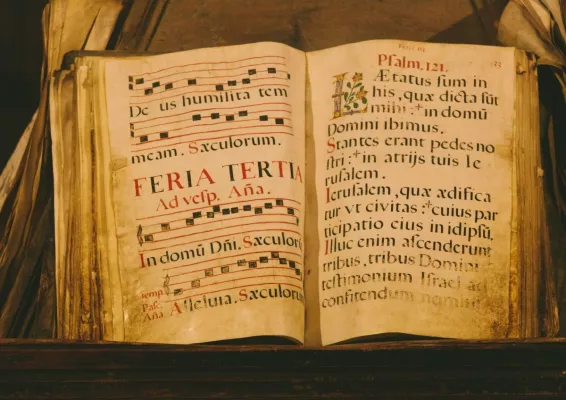 De us humilita tem
meam. Sæculorum.
FERIA TERTIA
Ad veſp. Aña.
In domū Dñi. Sæculorū
temp.
Paſc.
Aña. Alleluia. Sæculorum
Pſalm. 121.
LÆtatus ſum in
his, quæ dicta ſūt
mihi :+ in domū
Domini ibimus.
Stantes erant pedes no
ſtri :+ in atrijs tuis Ie
ruſalem.
Ieruſalem, quæ ædifica
tur vt civitas :+ cuius par
ticipatio eius in idipſū.
Illuc enim aſcenderunt
tribus, tribus Domini
teſtimonium Iſrael ad
confitendum nomini